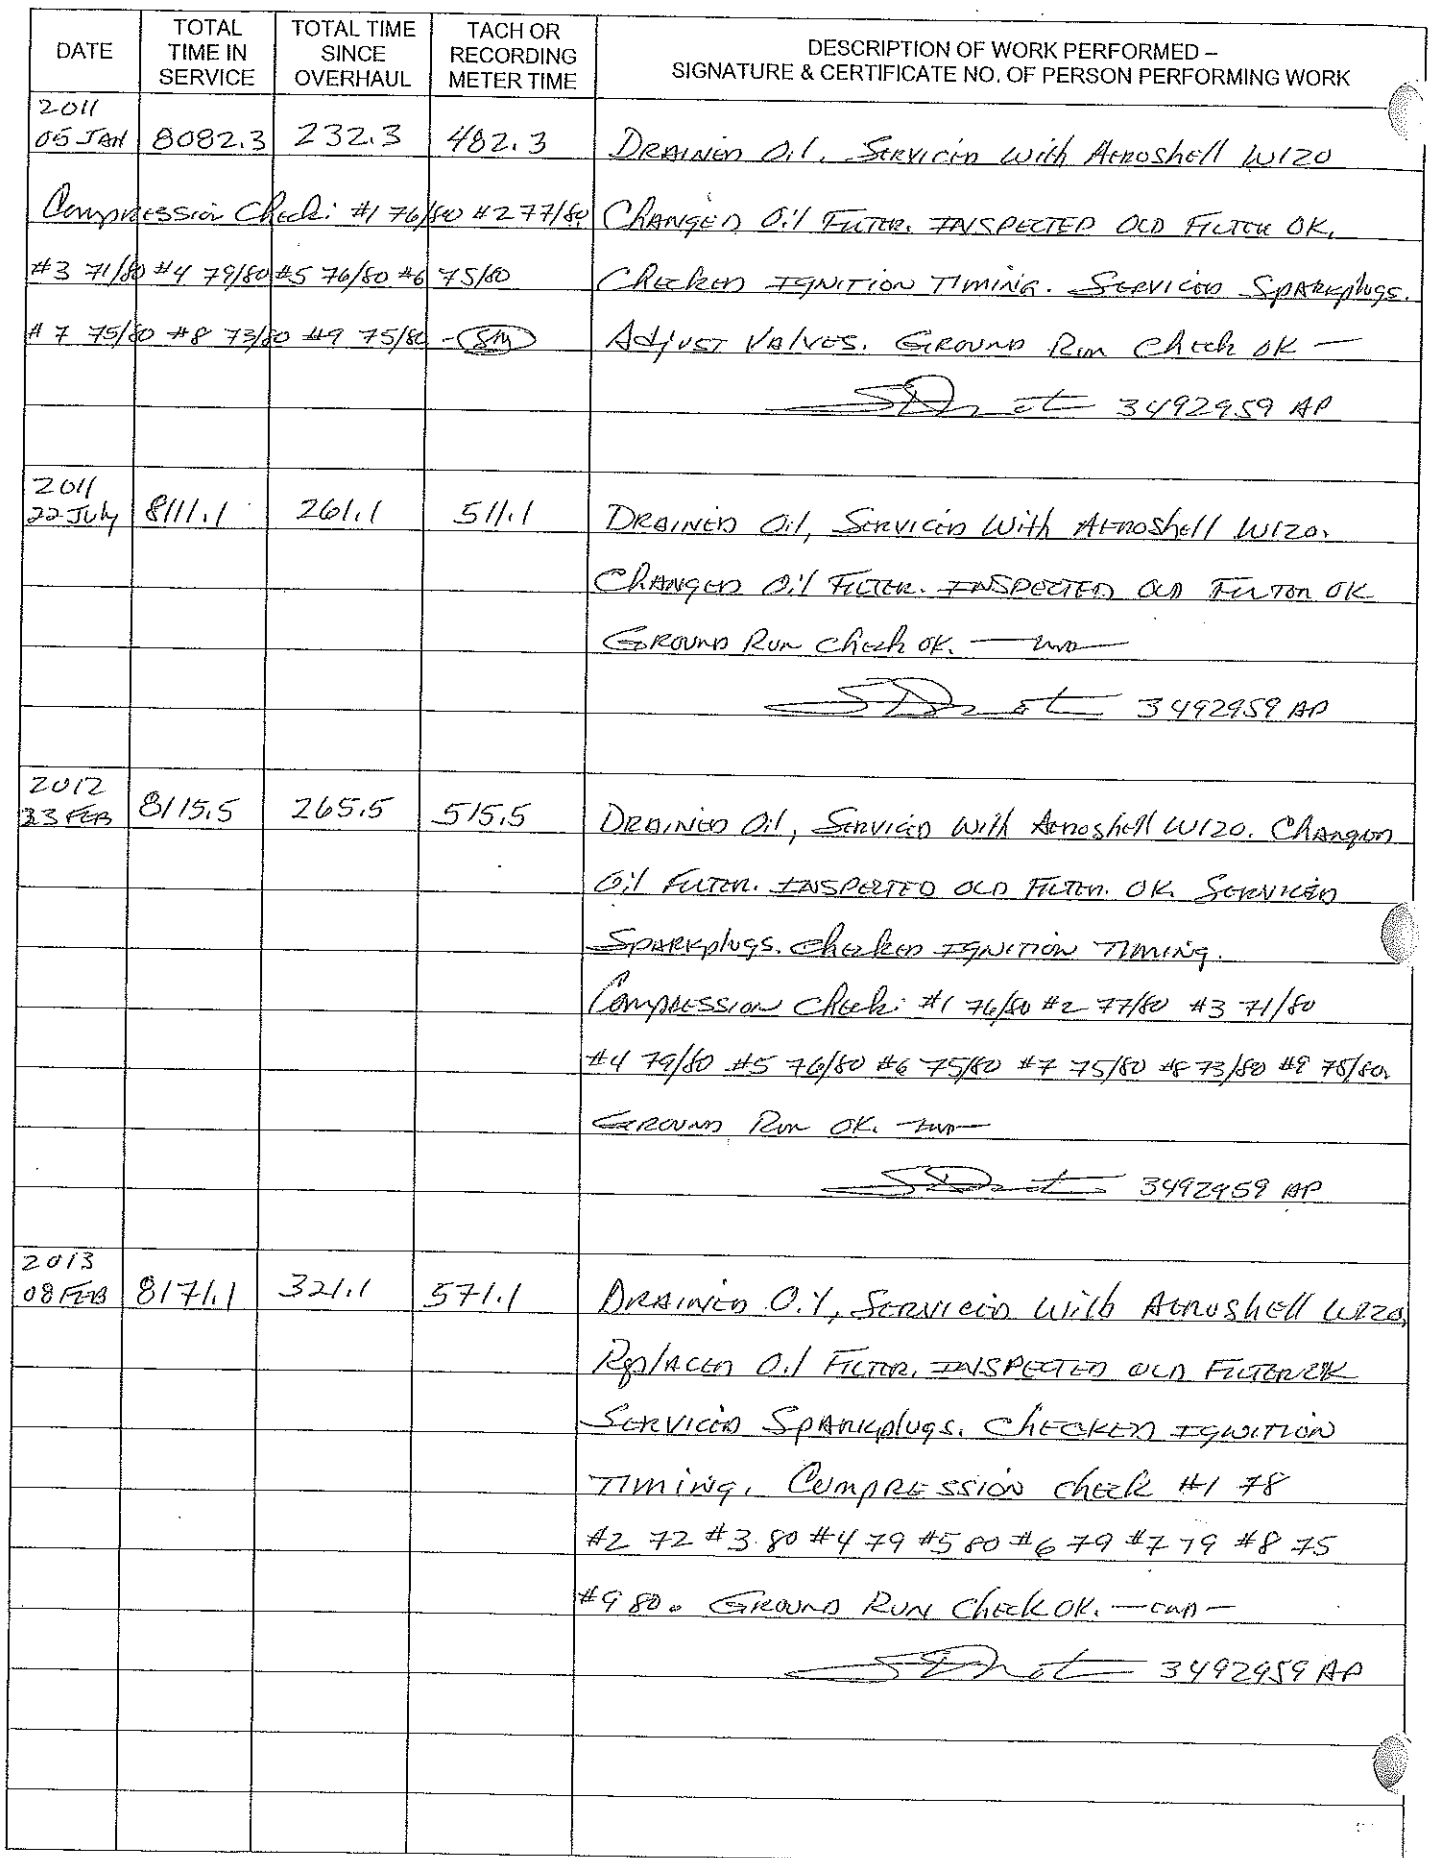 DATE TOTAL TIME IN SERVICE TOTAL TIME SINCE OVERHAUL TACH OR RECORDING METER TIME DESCRIPTION OF WORK PERFORMED – SIGNATURE & CERTIFICATE NO. OF PERSON PERFORMING WORK
2011
05 JAN 8082.3 232.3 482.3 DRAINED Oil. SERVICED with AEROShell W120
Compression Check: #1 76/80 #2 77/80 CHANGED Oil FILTER. INSPECTED OLD FILTER OK.
#3 71/80 #4 79/80 #5 76/80 #6 75/80 Checked IGNITION TIMING. SERVICED SPARKplugs.
#7 75/80 #8 73/80 #9 75/80 - Adjust VALVES. GROUND Run Check OK —
3492959 AP
2011
22 July 8111.1 261.1 511.1 DRAINED Oil, SERVICED With AEROShell W120.
CHANGED Oil FILTER. INSPECTED OLD FILTER OK
GROUND Run Check OK. —
3492959 AP
2012
23 FEB 8115.5 265.5 515.5 DRAINED Oil, SERVICED With Aeroshell W120. Changed
Oil FILTER. INSPECTED OLD FILTER. OK. SERVICED
SPARKplugs. Checked IGNITION TIMING.
Compression Check: #1 76/80 #2 77/80 #3 71/80
#4 79/80 #5 76/80 #6 75/80 #7 75/80 #8 73/80 #9 75/80.
GROUND Run OK. —
3492959 AP
2013
08 FEB 8171.1 321.1 571.1 DRAINED Oil, SERVICED With AEROShell W120,
Replaced Oil FILTER. INSPECTED OLD FILTER OK
SERVICED SPARKplugs. CHECKED IGNITION
TIMING. COMPRESSION check #1 78
#2 72 #3 80 #4 79 #5 80 #6 79 #7 79 #8 75
#9 80. GROUND RUN Check OK. — END —
3492959 AP